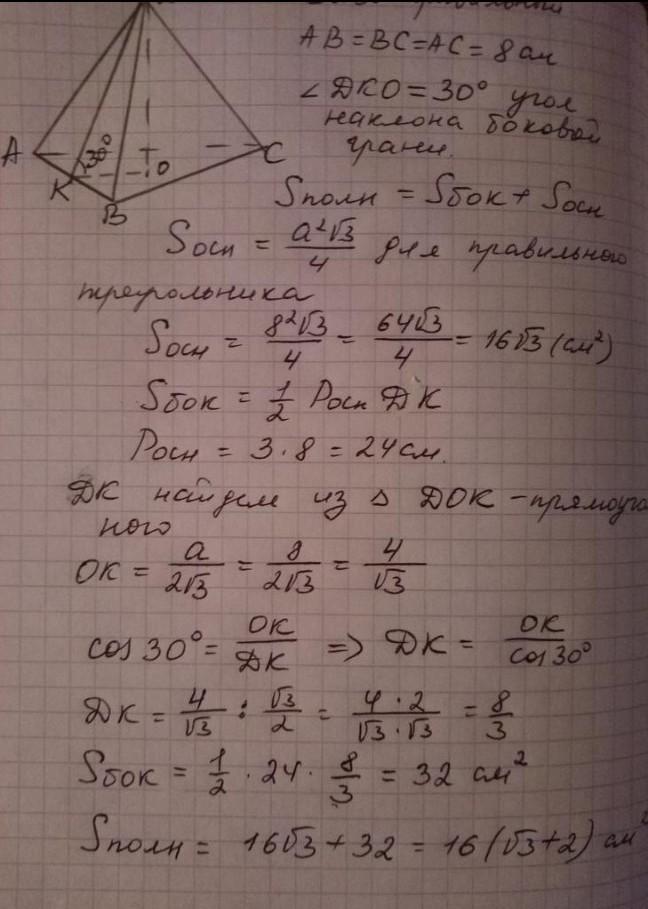 AB = BC = AC = 8 см
∠ DKO = 30° угол
наклона боковой
грани.
A 30° O C
K
B
Sполн = Sбок + Sосн
Sосн = a²√3/4 для правильного
треугольника
Sосн = 8²√3/4 = 64√3/4 = 16√3 (см²)
Sбок = 1/2 Pосн DK
Pосн = 3 · 8 = 24 см.
DK найдем из △ DOK - прямоуго
ного
OK = a/2√3 = 8/2√3 = 4/√3
cos 30° = OK/DK => DK = OK/cos 30°
DK = 4/√3 : √3/2 = 4 · 2/√3 · √3 = 8/3
Sбок = 1/2 · 24 · 8/3 = 32 см²
Sполн = 16√3 + 32 = 16(√3+2) см²